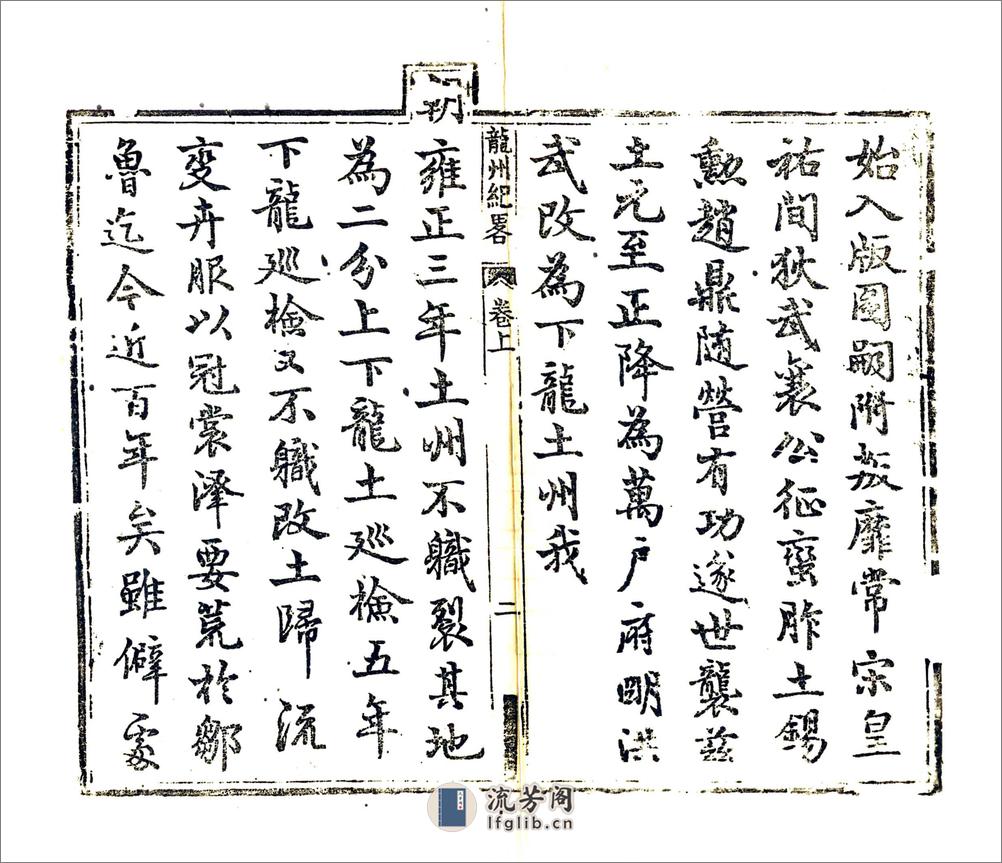 始入版圖嗣附叛靡常宋皇
祐間狄武襄公征蠻胙土錫
勲趙鼎随營有功遂世襲茲
土元至正降為萬户府明洪
武改為下龍土州我
龍州紀畧 卷上 二
朝雍正三年土州不軄裂其地
為二分上下龍土廵檢五年
下龍廵檢又不軄改土歸流
变卉服以冠裳澤要荒於鄒
魯迄今近百年矣雖僻處
流芳阁
lfglib.cn